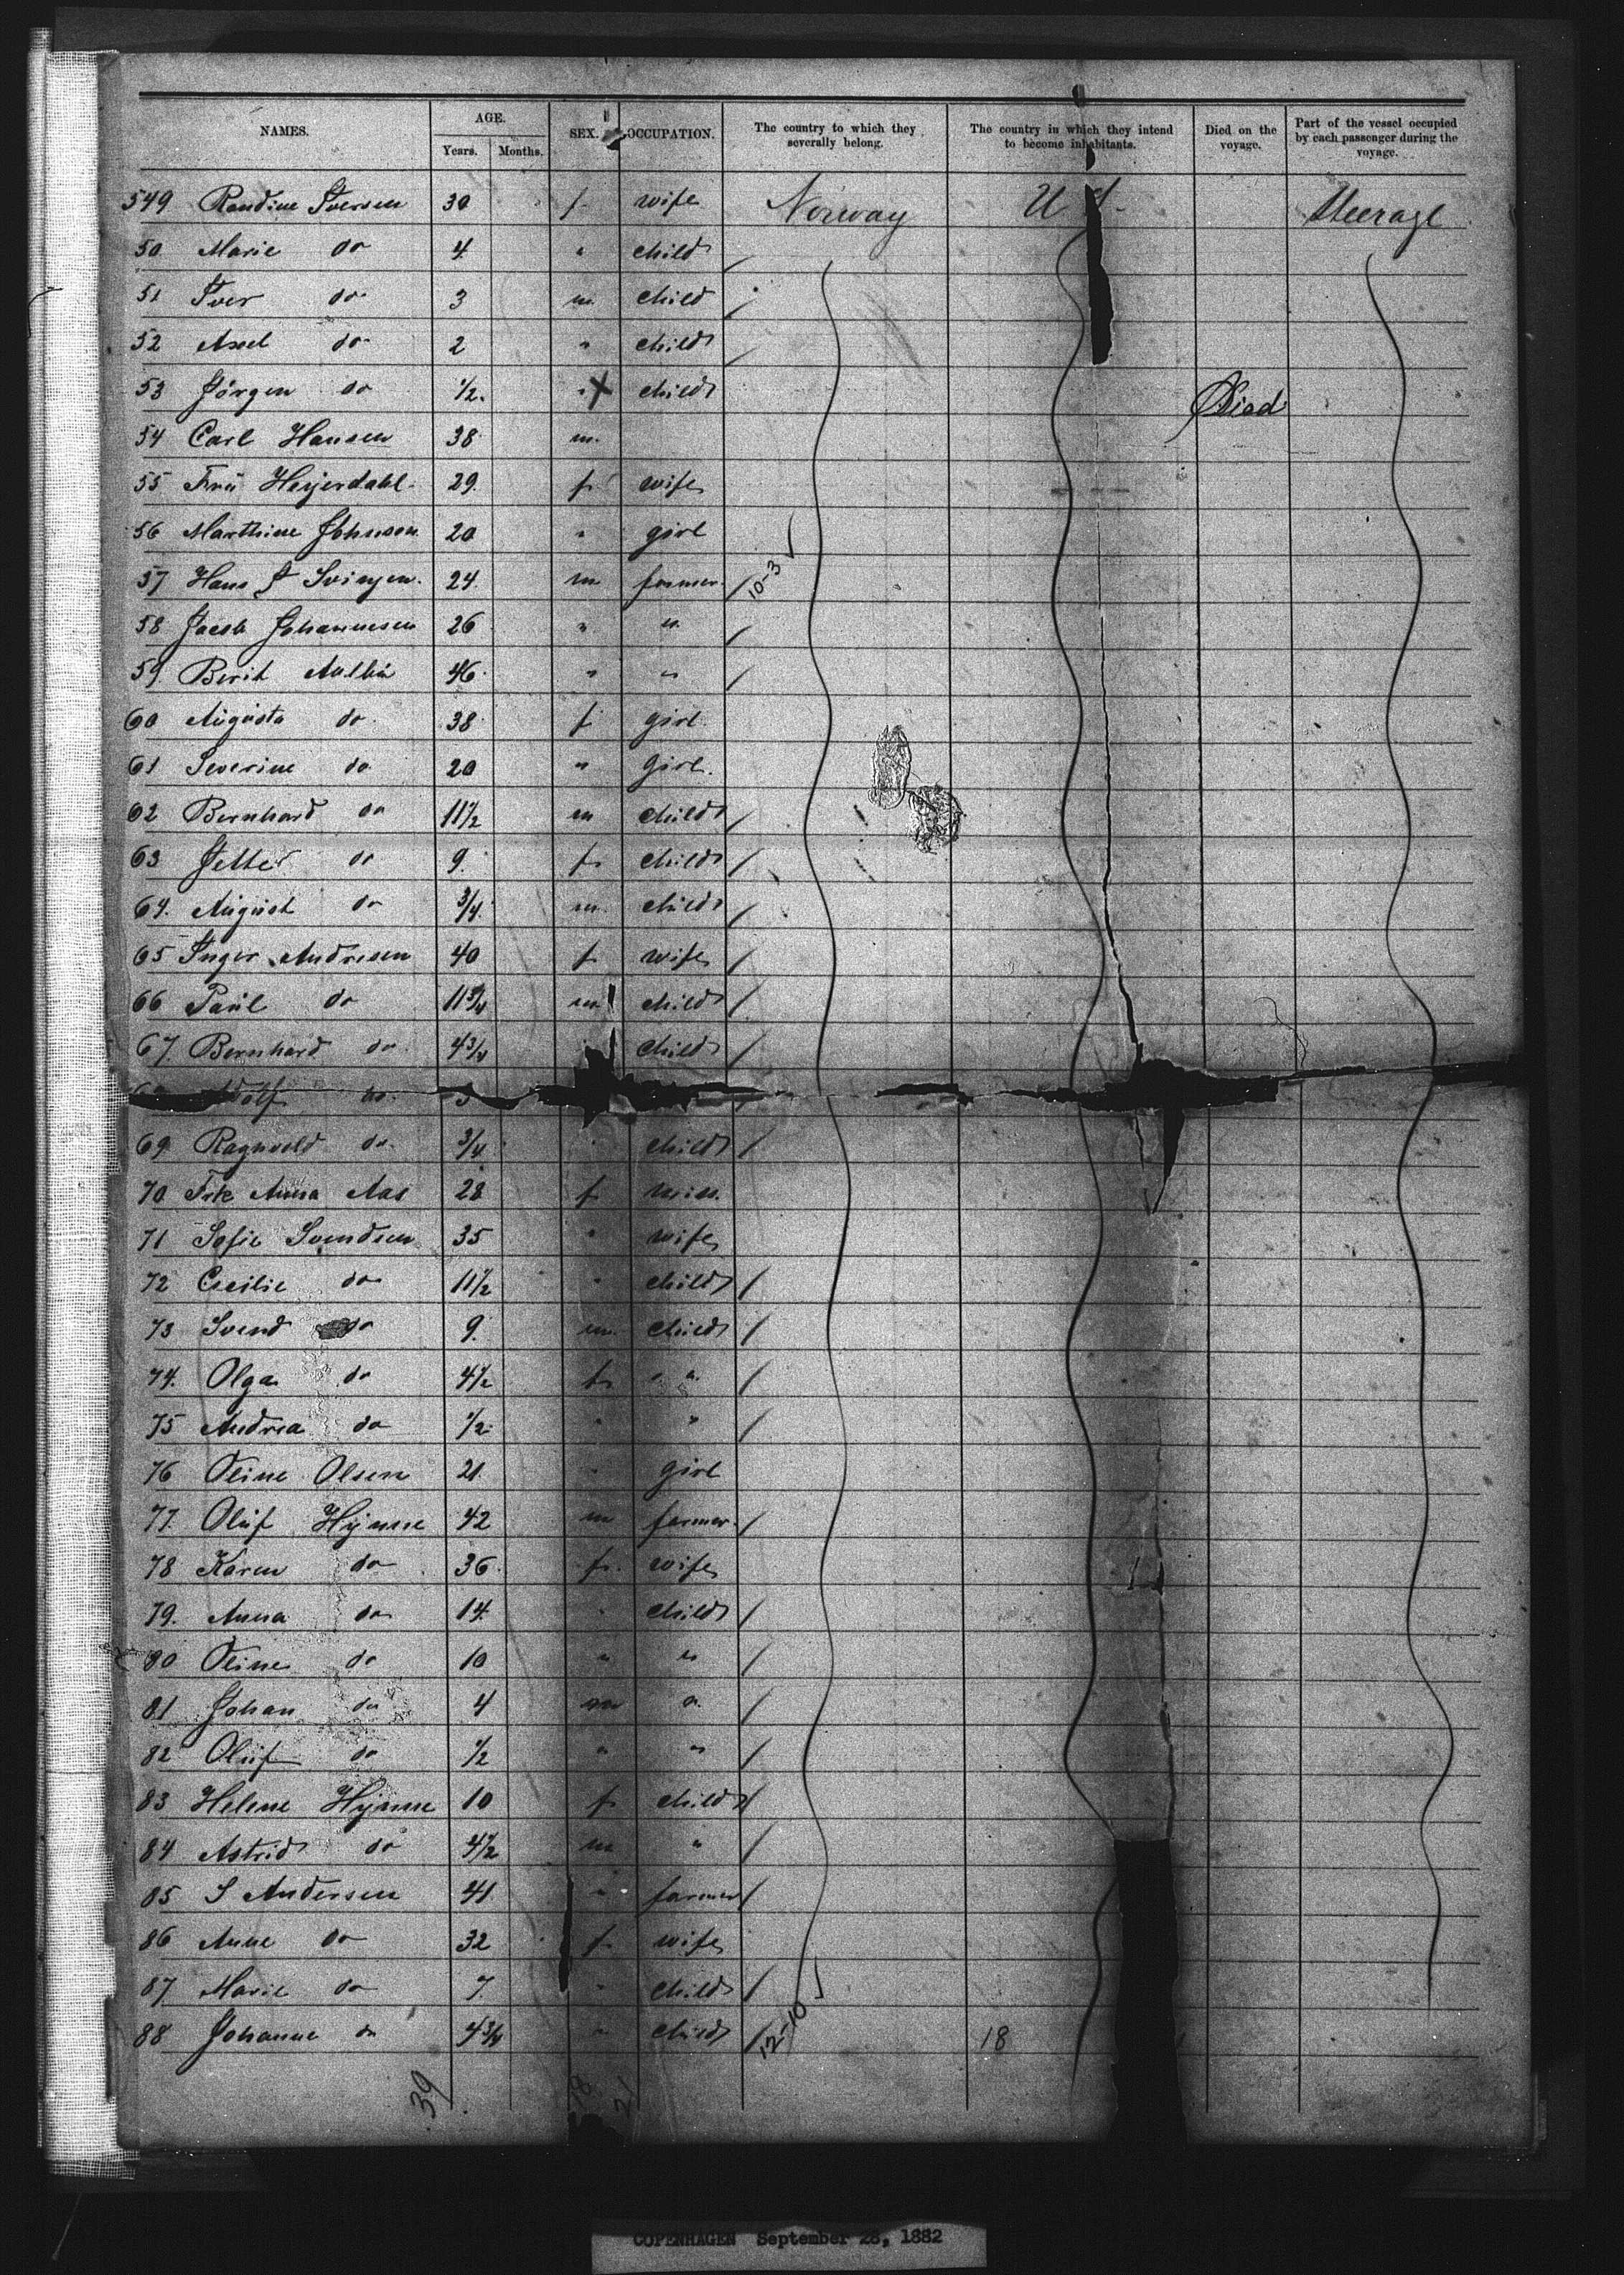 NAMES. AGE. Years. Months. SEX. OCCUPATION. The country to which they severally belong. The country in which they intend to become inhabitants. Died on the voyage. Part of the vessel occupied by each passenger during the voyage.
549 Randine Iversen 30 f. wife Norway U S. Steerage
50 Marie do 4 " child
51 Iver do 3 m. child
52 Axel do 2 " child
53 Jörgen do 1/2. " X child Died
54 Carl Hansen 38 m.
55 Frü Heyerdahl 29. f wife
56 Marthine Johnsen 20 " girl
57 Hans J Svingen. 24. m farmer 10-3
58 Jacob Johannesen 26 " "
59. Berit 46 " "
60 Augusta do 38 f girl
61 Severine do 20 " girl.
62 Bernhard do 11 1/2 m child
63 do 9. f child
64. August do 3/4 m. child
65 Inger Andresen 40 f wife
66 Paul do 11 3/4 m child
67. Bernhard do 4 3/4 child
do
69 Ragnvald do 3/4 " child
70 Frk Anna Aas 28 f miss.
71 Sofie Svendsen 35 " wife
72 Cecilie do 11 1/2 " child
73 Svend do 9. m. child
74. Olga do 4 1/2 f "
75 Andrea do 1/2 " "
76 Oline Olsen 21. " girl
77. Oluf Hynne 42 m farmer.
78 Karen do 36. f. wife
79. Anna do 14. " child
80 Oline do 10 " "
81 Johan do 4 m "
82 Oluf do 1/2 " "
83 Helene Hynne 10 f child
84 Astrid do 4 1/2 m "
85 S Andersen 41. " farmer
86 Anne do 32 f wife
87. Marie do 7. " child
88 Johanne do 4 3/4 " child 12-10 18
39 18 21
COPENHAGEN September 28, 1882